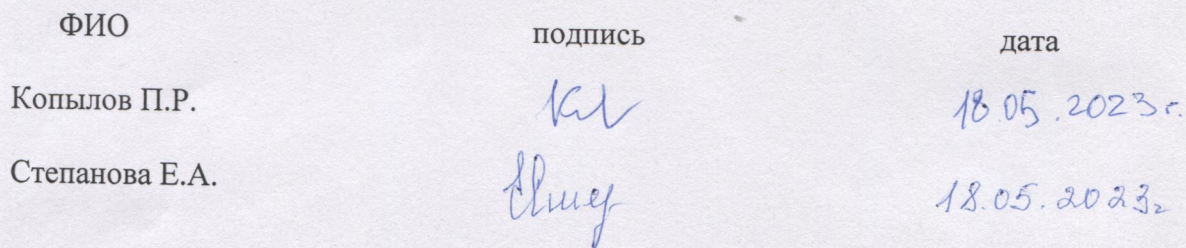 ФИО подпись дата
Копылов П.Р. 18.05.2023г.
Степанова Е.А. 18.05.2023г